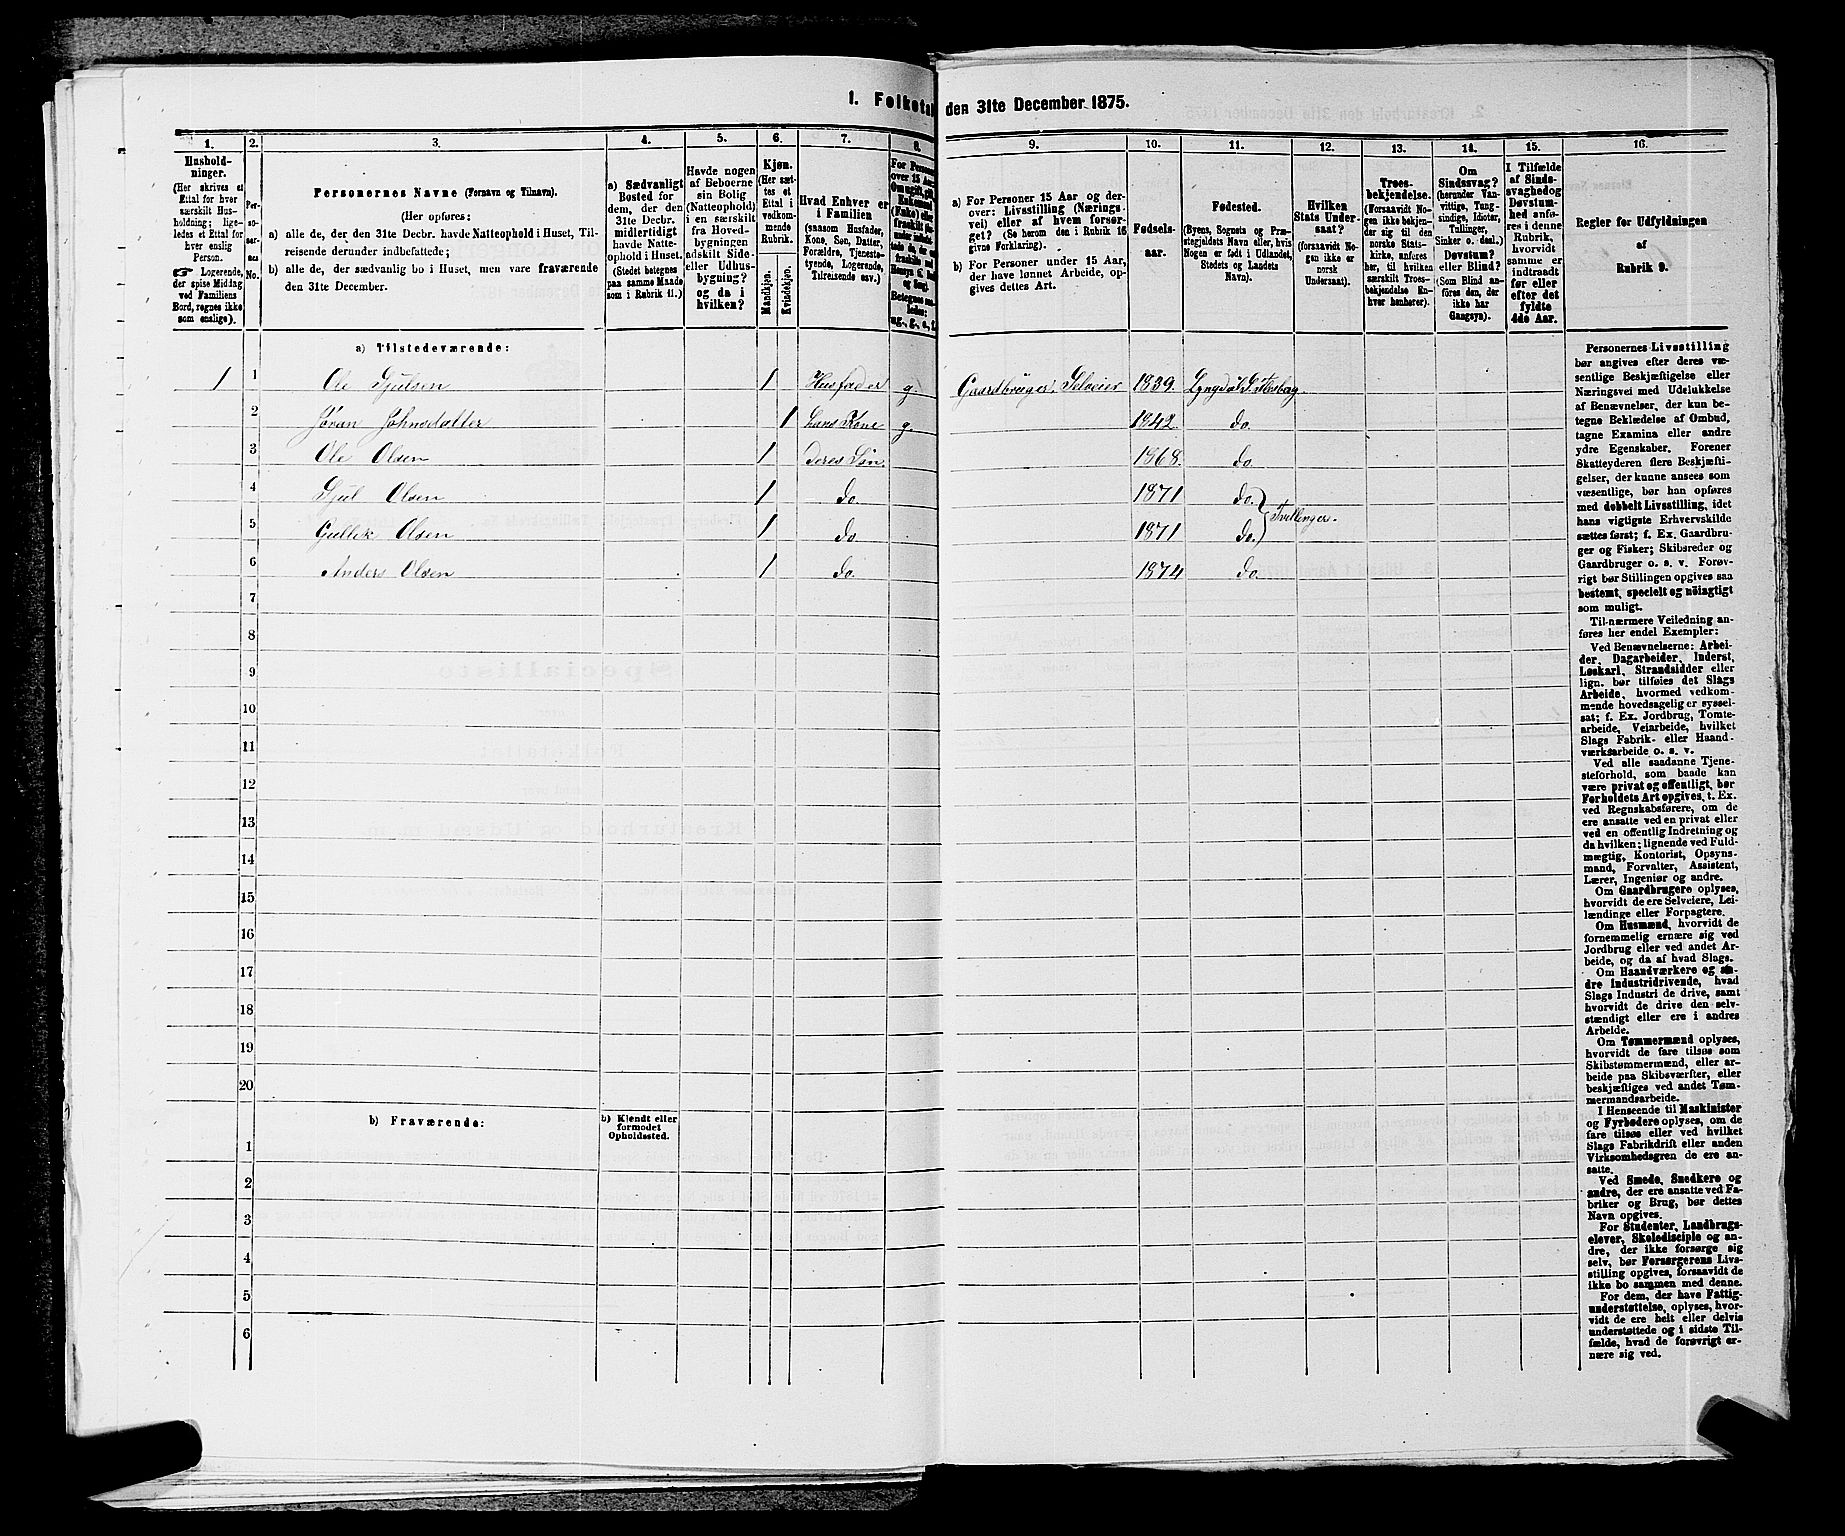 1. Folketal den 31te December 1875.
1. 2. 3. 4. 5. 6. 7. 8. 9. 10. 11. 12. 13. 14. 15. 16.
Hushold-
ninger.
(Her skrives et
Ettal for hver
særskilt Hus-
holdning; lige-
ledes et Ettal for
hver enslig
Person.
☛ Logerende,
der spise Middag
ved Familiens
Bord, regnes ikke
som enslige).
Per-
so-
ner-
nes
No.
Personernes Navne (Fornavn og Tilnavn).
(Her opføres:
a) alle de, der den 31te Decbr. havde Natteophold i Huset, Til-
reisende derunder indbefattede;
b) alle de, der sædvanlig bo i Huset, men vare fraværende
den 31te December.
a) Sædvanligt
Bosted for
dem, der den
31te Decbr.
midlertidigt
havde Natte-
ophold i Huset.
(Stedet betegnes
paa samme Maade
som i Rubrik 11.)
Havde nogen
af Beboerne
sin Bolig
(Natteophold)
i en særskilt
fra Hoved-
bygningen
adskilt Side-
eller Udhus-
bygning?
og da i
hvilken?
Kjøn.
(Her sæt-
tes et
Ettal i
vedkom-
mende
Rubrik.
Mandkjøn.
Kvindekjøn.
Hvad Enhver er
i Familien
(saasom Husfader,
Kone, Søn, Datter,
Forældre, Tjeneste-
tyende, Logerende,
Tilreisende osv.)
a) For Personer 15 Aar og der-
over: Livsstilling (Nærings-
vei) eller af hvem forsør-
get? (Se herom den i Rubrik 16
givne Forklaring).
b) For Personer under 15 Aar,
der have lønnet Arbeide, op-
gives dettes Art.
Fødsels-
aar.
Fødested.
(Byens, Sognets og Præ-
stegjeldets Navn eller, hvis
Nogen er født i Udlandet,
Stedets og Landets
Navn).
Hvilken
Stats Under-
saat?
(forsaavidt No-
gen ikke er
norsk
Undersaat).
Troes-
bekjendelse.
(Forsaavidt No-
gen ikke bekjen-
der sig til den
norske Stats-
kirke, anføres
her, til hvilken
særskilt Troes-
bekjendelse En-
hver henhører).
Om
Sindssvag?
(herunder Van-
vittige, Tung-
sindige, Idioter,
Tullinger,
Sinker o. desl.)
Døvstum?
eller Blind?
(Som Blind an-
føres den, der
ikke har
Gangsyn).
I Tilfælde
af Sinds-
svaghed og
Døvstum-
hed anfø-
res i denne
Rubrik,
hvorvidt
samme er
indtraadt
før eller
efter det
fyldte
4de Aar.
Regler for Udfyldningen
af
Rubrik 9.
a) Tilstedeværende:
1 1 Ole Gjulsen 1 Husfader g. Gaardbruger, Selveier 1839.
2 Jöran Johnsdatter 1 hans Kone g. 1842. do.
3 Ole Olsen 1 deres Søn. 1868. do.
4 Gjul Olsen 1 do. 1871 do.
Tvillinger.
5 Gullik Olsen 1 do. 1871 do.
6 Anders Olsen 1 do. 1874 do.
7
8
9
10
11
12
13
14
15
16
17
18
19
20
b) Fraværende:
b) Kjendt eller
formodet
Opholdssted.
1
2
3
4
5
6
Personernes Livsstilling
bør angives efter deres væ-
sentlige Beskjæftigelse eller
Næringsvei med Udelukkelse
af Benævnelser, der kun be-
tegne Beklædelse af Ombud,
tagne Examina eller andre
ydre Egenskaber. Forener
Skatteyderen flere Beskjæfti-
gelser, der kunne ansees som
væsentlige, bør han opføres
med dobbelt Livsstilling, idet
hans vigtigste Erhvervskilde
sættes først; f. Ex. Gaardbru-
ger og Fisker; Skibsreder og
Gaardbruger o. s. v. Forøv-
rigt bør Stillingen opgives saa
bestemt, specielt og nöiagtigt
som muligt.
Til nærmere Veiledning an-
føres her endel Exempler:
Ved Benævnelserne: Arbei-
der, Dagarbeider, Inderst,
Løskarl, Strandsidder eller
lign. bør tilføies det Slags
Arbeide, hvormed vedkom-
mende hovedsagelig er syssel-
sat; f. Ex. Jordbrug, Tomte-
arbeide, Veiarbeide, hvilket
Slags Fabrik- eller Haand-
værksarbeide o. s. v.
Ved alle saadanne Tjene-
steforhold, som baade kan
være privat og offentligt, bør
Forholdets Art opgives, t. Ex.
ved Regnskabsførere, om de
ere ansatte ved en privat eller
ved en offentlig Indretning og
da hvilken; lignende ved Fuld-
mægtig, Kontorist, Opsyns-
mand, Forvalter, Assistent,
Lærer, Ingeniør og andre.
Om Gaardbrugere oplyses,
hvorvidt de ere Selveiere, Lei-
lændinge eller Forpagtere.
Om Husmænd, hvorvidt de
fornemmelig ernære sig ved
Jordbrug eller ved andet Ar-
beide, og da af hvad Slags.
Om Haandværkere og an-
dre Industridrivende, hvad
Slags Industri de drive, samt
hvorvidt de drive den selv-
stændigt eller ere i andres
Arbeide.
Om Tømmermænd oplyses,
hvorvidt de fare tilsøs som
Skibstømmermænd, eller ar-
beide paa Skibsværfter, eller
beskjæftiges ved andet Tøm-
mermandsarbeide.
I Henseende til Maskinister
og Fyrbødere oplyses, om de
fare tilsøs eller ved hvilket
Slags Fabrikdrift eller anden
Virksomhedsgren de ere an-
satte.
Ved Smede, Snedkere og
andre, der ere ansatte ved Fa-
briker og Brug, bør dettes
Navn opgives.
For Studenter, Landbrugs-
elever, Skoledisciple og an-
dre, der ikke forsørge sig
selv, bør Forsørgerens Livs-
stilling opgives, forsaavidt de
ikke bo sammen med denne.
For dem, der have Fattig-
understøttelse, oplyses, hvor-
vidt de ere helt eller delvis
understøttede og i sidste Til-
fælde, hvad de forøvrigt er-
nære sig ved.